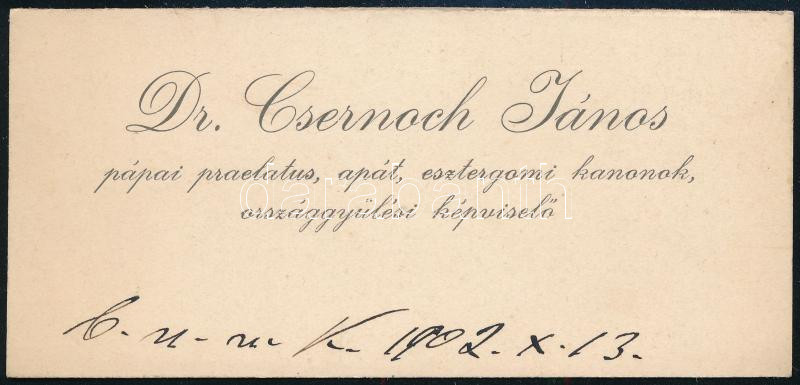 Dr. Csernoch János
pápai praelatus, apát, esztergomi kanonok,
országgyülési képviselő
B. u. é. k. 1902. X. 13.